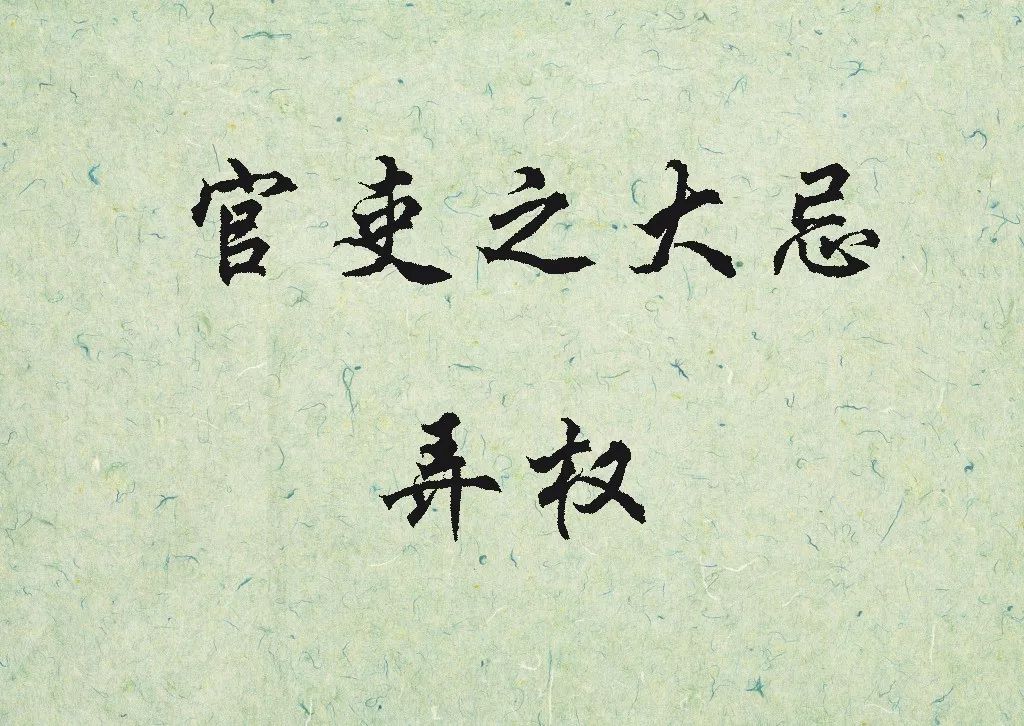 官吏之大忌
弄权